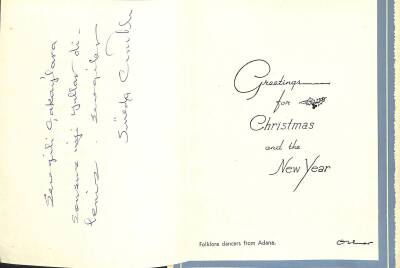 Sevgili Çakaylara
sonsuz iyi yıllar di-
leriz. Sevgiler
Greetings
for
Christmas
and the
New Year
Folklore dancers from Adana.